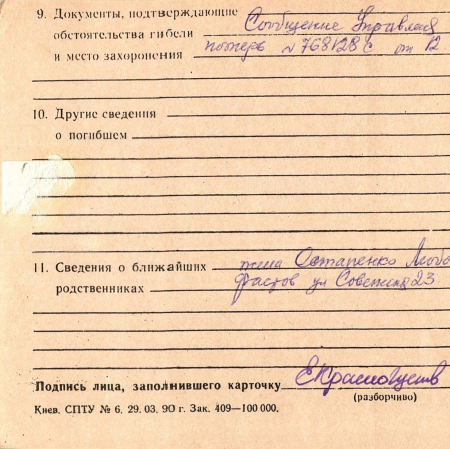 9. Документы, подтверждающие
обстоятельства гибели Сообщение Управлен
и место захоронения потерь № 768128с от 12
10. Другие сведения
о погибшем
11. Сведения о ближайших жена Остапенко Любо
родственниках Фастов ул Советская 23
Подпись лица, заполнившего карточку
(разборчиво)
Киев. СПТУ № 6, 29. 03. 90 г. Зак. 409—100 000.